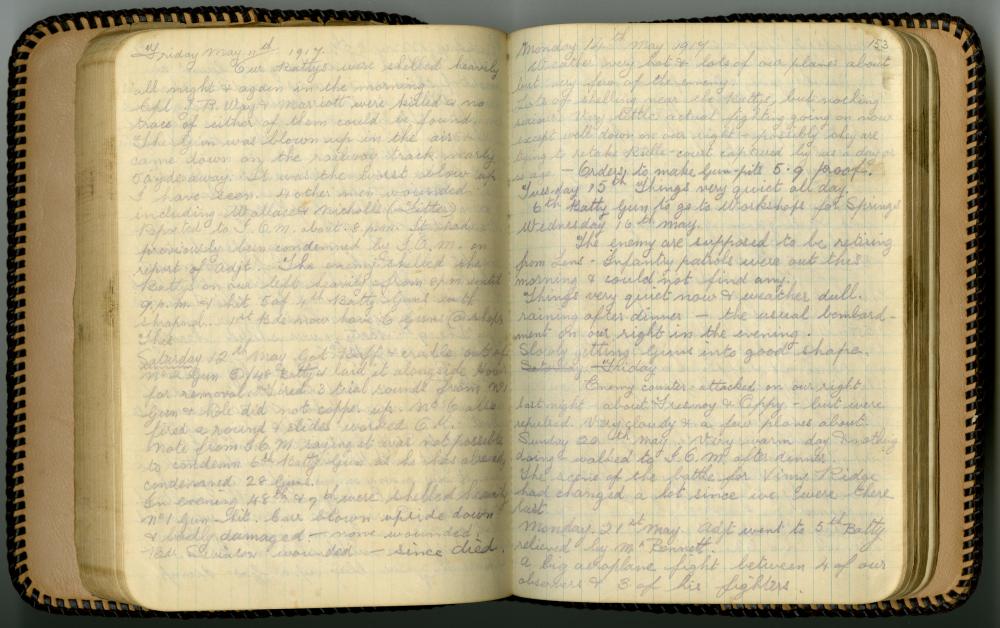 Friday May nd 1917.
Our Battys were shelled heavily
all night & again in the morning.
Cpl J. B. Way & Marriott were killed & no
trace of either of them could be found.
The Gun was blown up in the air &
came down on the railway track nearly
50 yds away. It was the worst blow up
I have seen. 4 other men wounded
including Wallace & Nicholls (Fitter)
Reported to I.O.M. about 8 p.m. It had
previously been condemned by I.O.M. on
report of Adjt. The enemy shelled the
Battys on our left heavily from 8 p.m. until
9 p.m. & hit 5 of 4th Batty Guns with
shrapnel. 1st Bde now have 6 Guns @ shops
Saturday 12th May Got Buff & cradle out of
Nº 2 Gun 5/48 Batty & laid it alongside
for removal. Fired 3 trial rounds from Nº 1
Gun & Hole did not copper up. Nº 6 also
fired a round & slides worked O.K.
Note from I.O.M. saying it was not possible
to condemn 6th Batty Gun as he has already
condemned 28 Guns.
In evening 48th & 9th were shelled heavily
Nº 1 Gun Hit. Car blown upside down
& badly damaged - none wounded.
wounded - since died.
153
Monday 14th May 1917
Weather very hot & lots of our planes about
but very few of the enemy.
Lots of shelling near the Battys, but nothing
serious. Very little actual fighting going on now
except well down on our right & possibly they are
trying to retake Bulle-court captured by us a day or
so ago - Orders to make Gun-pits 5.9 proof.
Tuesday 15th Things very quiet all day.
6th Batty Gun to go to Workshops for Springs
Wednesday 16th May.
The enemy are supposed to be retiring
from Lens - Infantry patrols were out this
morning & could not find any.
Things very quiet now & weather dull.
raining after dinner - the usual bombard-
ment on our right in the evening.
Slowly getting Guns into good shape.
Saturday Friday
Enemy counter-attacked on our right
last night about Fresnoy & Oppy - but were
repulsed. Very cloudy & a few planes about.
Sunday 20th May. Very warm day & nothing
doing walked to I.O.M. after dinner
The scene of the battle for Vimy Ridge
had changed a lot since we were there
last.
Monday 21st May. Adjt went to 5th Batty
relieved by Mr Bennett.
A big aeroplane fight between 4 of our
observers & 3 of his fighters.